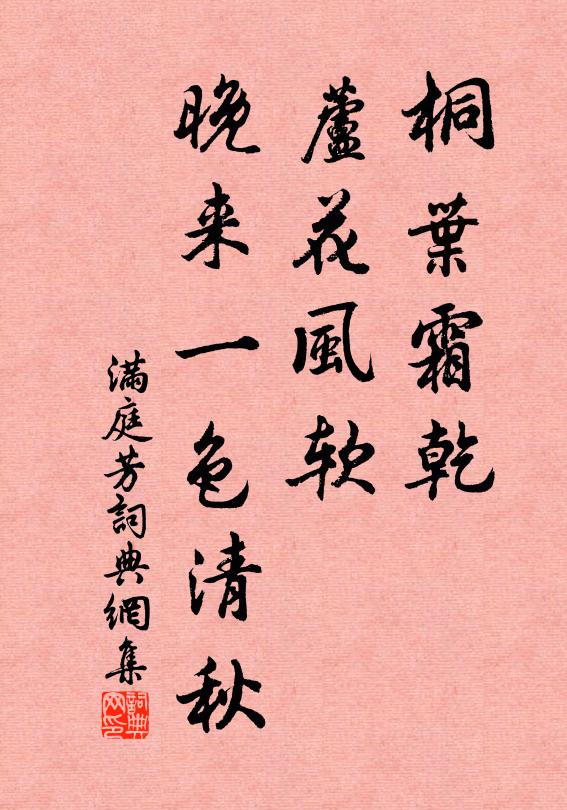 桐葉霜乾
蘆花風软
晚来一色清秋
满庭芳詞典網集
詞典网印